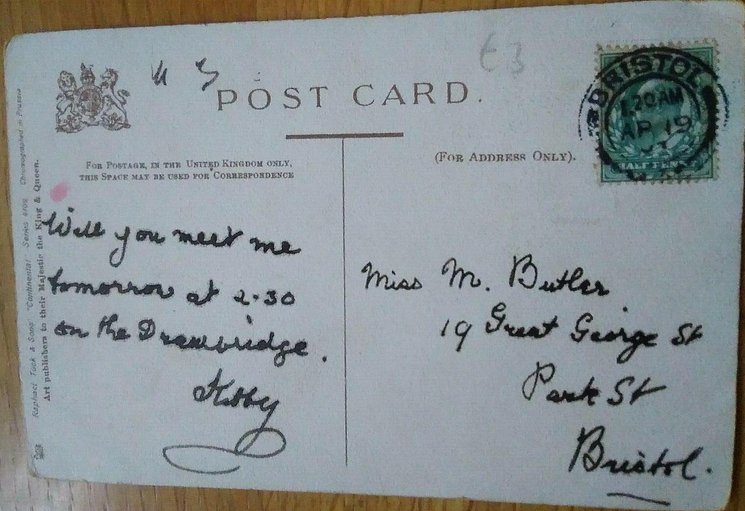 POST CARD.
£3
BRISTOL
1.20AM
AP 19
HALF PENNY
FOR POSTAGE, IN THE UNITED KINGDOM ONLY,
THIS SPACE MAY BE USED FOR CORRESPONDENCE
(FOR ADDRESS ONLY).
Raphael Tuck & Sons "Continental" Series Chromographed in Prussia
Art publishers to their Majesties the King & Queen.
Will you meet me
tomorrow at 2.30
on the Drawbridge.
Miss M. Butler
19 Great George St
Park St
Bristol.